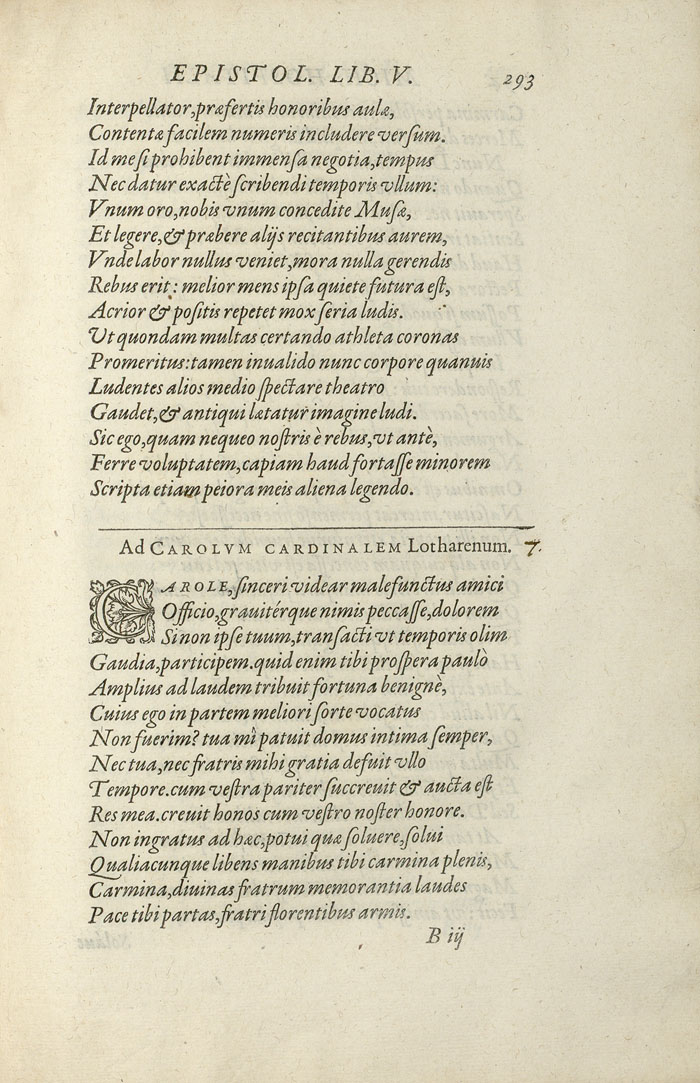 EPISTOL. LIB. V. 293
Interpellator, præfertis honoribus aulæ,
Contentæ facilem numeris includere versum.
Id me si prohibent immensa negotia, tempus
Nec datur exactè scribendi temporis vllum:
Vnum oro, nobis vnum concedite Musæ,
Et legere, & præbere alijs recitantibus aurem,
Vnde labor nullus veniet, mora nulla gerendis
Rebus erit: melior mens ipsa quiete futura est,
Acrior & positis repetet mox seria ludis.
Vt quondam multas certando athleta coronas
Promeritus: tamen inualido nunc corpore quanuis
Ludentes alios medio spectare theatro
Gaudet, & antiqui lætatur imagine ludi.
Sic ego, quam nequeo nostris è rebus, vt antè,
Ferre voluptatem, capiam haud fortasse minorem
Scripta etiam peiora meis aliena legendo.
Ad CAROLVM CARDINALEM Lotharenum. 7.
CAROLE, sinceri videar malefunctus amici
Officio, grauitérque nimis peccasse, dolorem
Si non ipse tuum, transacti vt temporis olim
Gaudia, participem. quid enim tibi prospera paulò
Amplius ad laudem tribuit fortuna benignè,
Cuius ego in partem meliori sorte vocatus
Non fuerim? tua mî patuit domus intima semper,
Nec tua, nec fratris mihi gratia defuit vllo
Tempore. cum vestra pariter succreuit & aucta est
Res mea. creuit honos cum vestro noster honore.
Non ingratus ad hæc, potui quæ soluere, solui
Qualiacunque libens manibus tibi carmina plenis,
Carmina, diuinas fratrum memorantia laudes
Pace tibi partas, fratri florentibus armis.
B iij